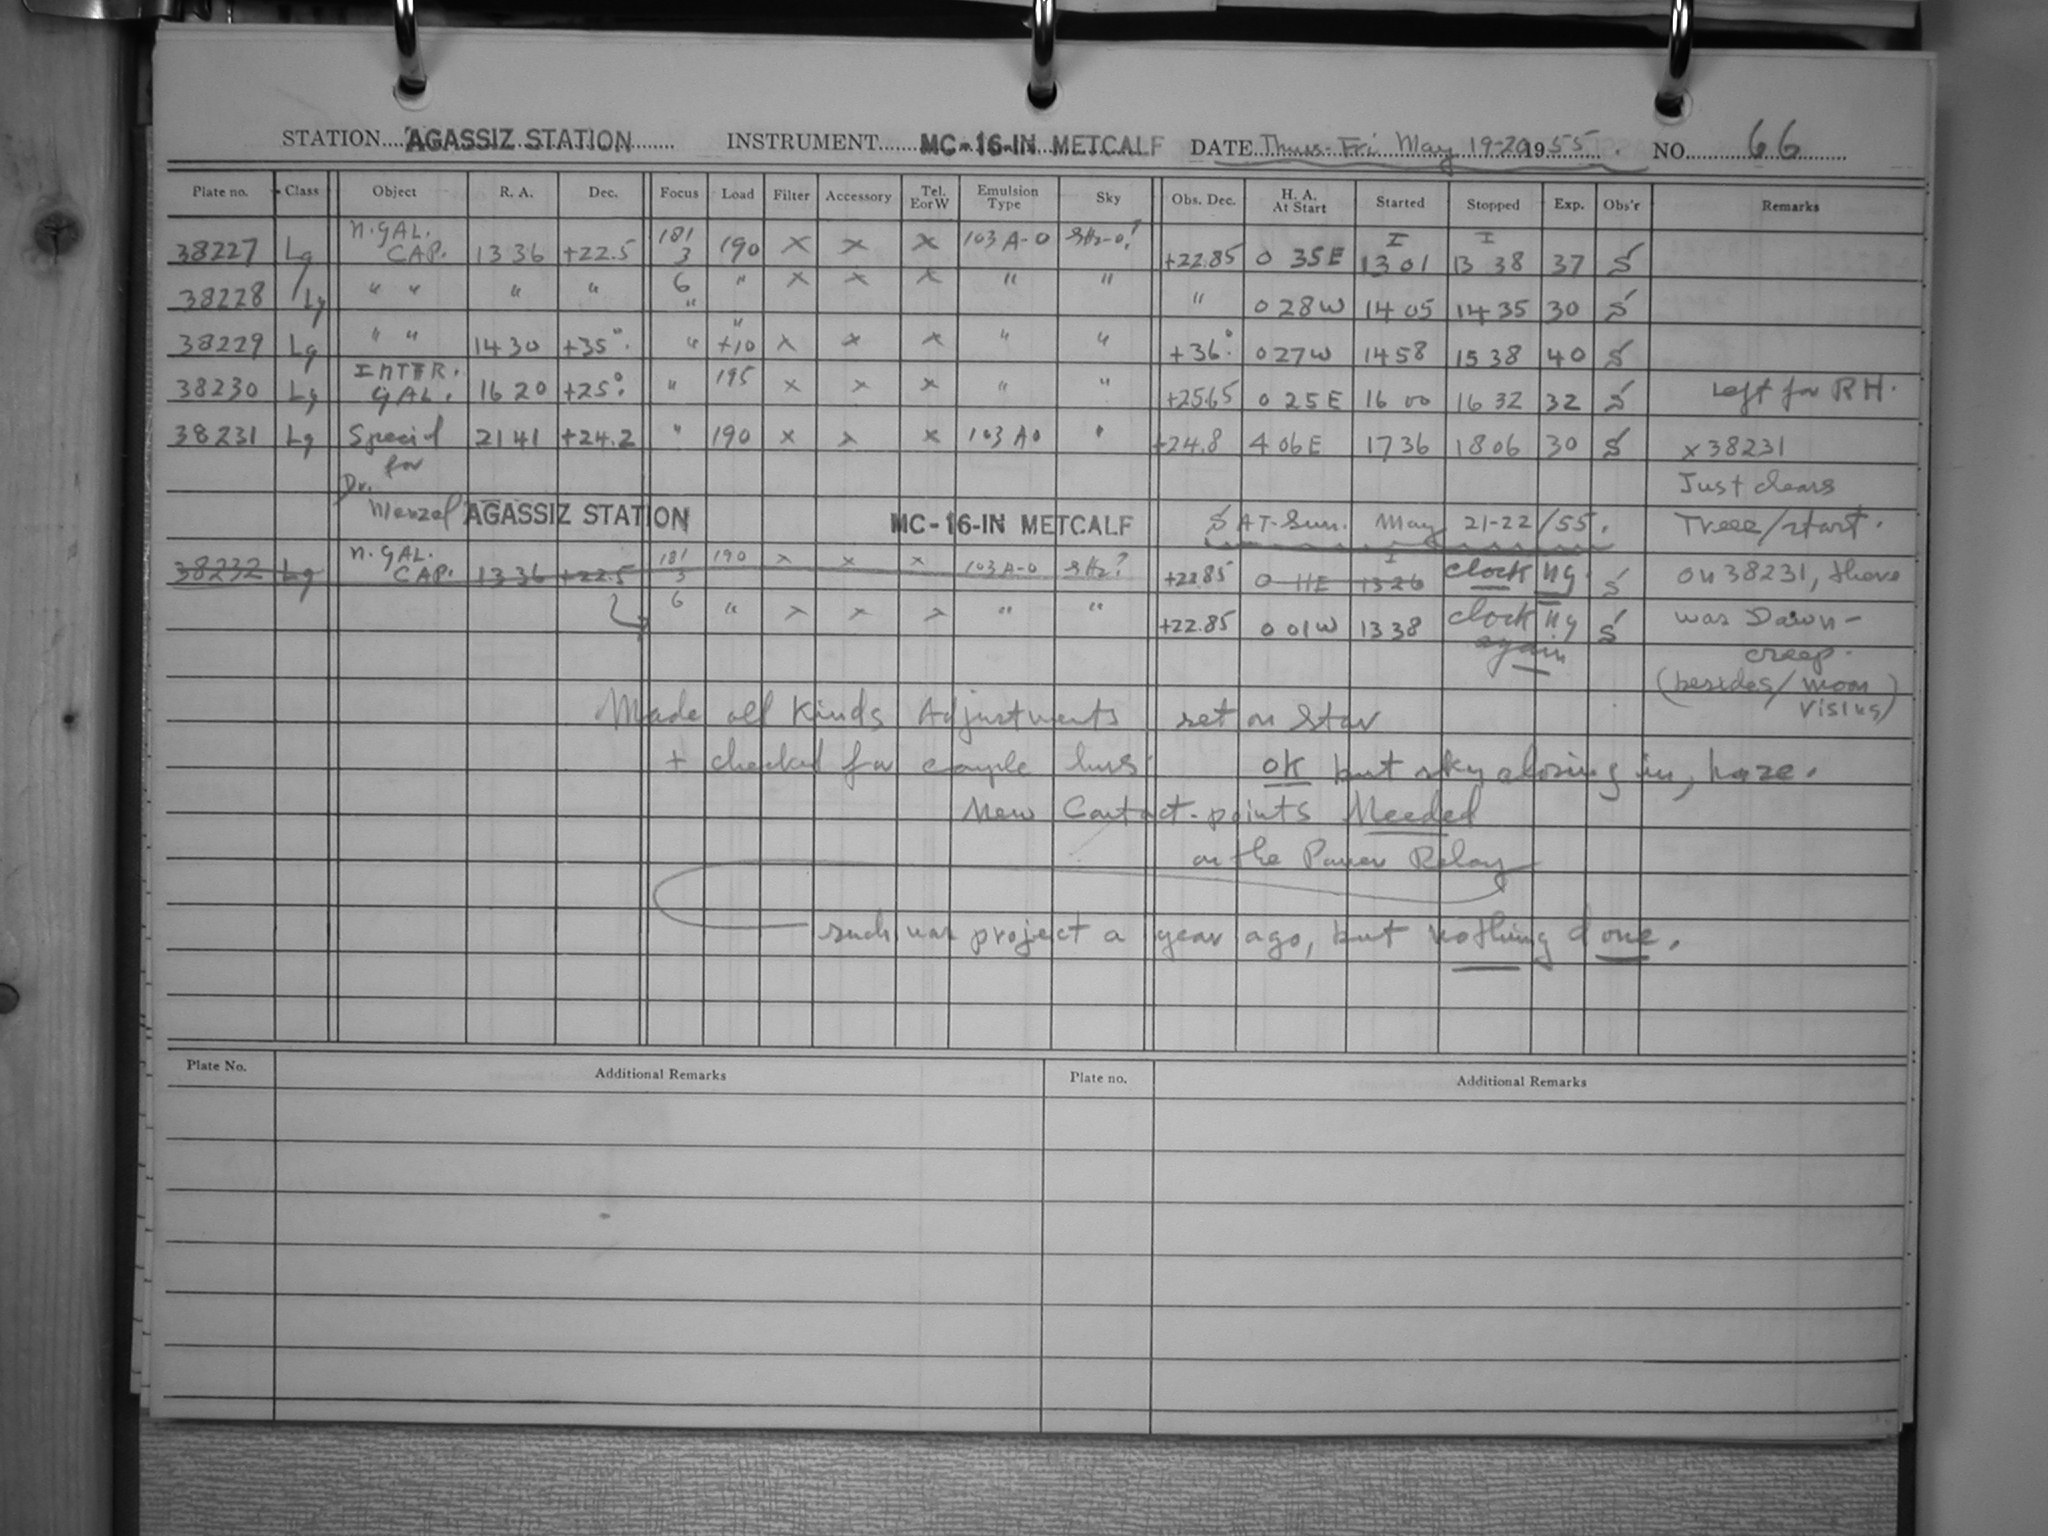 STATION....AGASSIZ STATION....... INSTRUMENT.......MC-16-IN METCALF DATE Thurs-Fri May 19-20 1955. NO. 66
Plate no. Class Object R. A. Dec. Focus Load Filter Accessory Tel. E or W Emulsion Type Sky Obs. Dec. H. A. At Start Started Stopped Exp. Obs'r Remarks
N. GAL. 181 I I
38227 Lg CAP. 13 36 +22.5 3 190 X X X 103 A-0 +22.85 0 35E 13 01 13 38 37 S
6
38228 Lg " " " " " " X X X " " " 0 28W 14 05 14 35 30 S
38229 Lg " " 14 30 +35°. " " +10 X X X " " +36°. 0 27W 14 58 15 38 40 S
INTER.
38230 Lg GAL. 16 20 +25°. " 195 X X X " " +25.65 0 25E 16 00 16 32 32 S Left for RH.
38231 Lg Special 21 41 +24.2 " 190 X X X 103 A0 " +24.8 4 06E 17 36 18 06 30 S x 38231
for
Dr. Just clears
Menzel AGASSIZ STATION MC-16-IN METCALF SAT-Sun. May 21-22/55. Treee/start.
N. GAL. 181 190 X X X I
38232 Lg CAP. 13 36 +22.5 3 103 A-0 +22.85 0 11E 13 26 clock ng S on 38231, there
6 " X X X " " +22.85 0 01W 13 38 clock ng S was Dawn-
again creep.
(besides/moon
rising)
Made all kinds Adjustments set on Star
+ checked for couple hrs OK but sky closing in, haze.
New Contact-points Needed
on the Power Relay
such was project a year ago, but nothing done.
Plate No. Additional Remarks Plate no. Additional Remarks